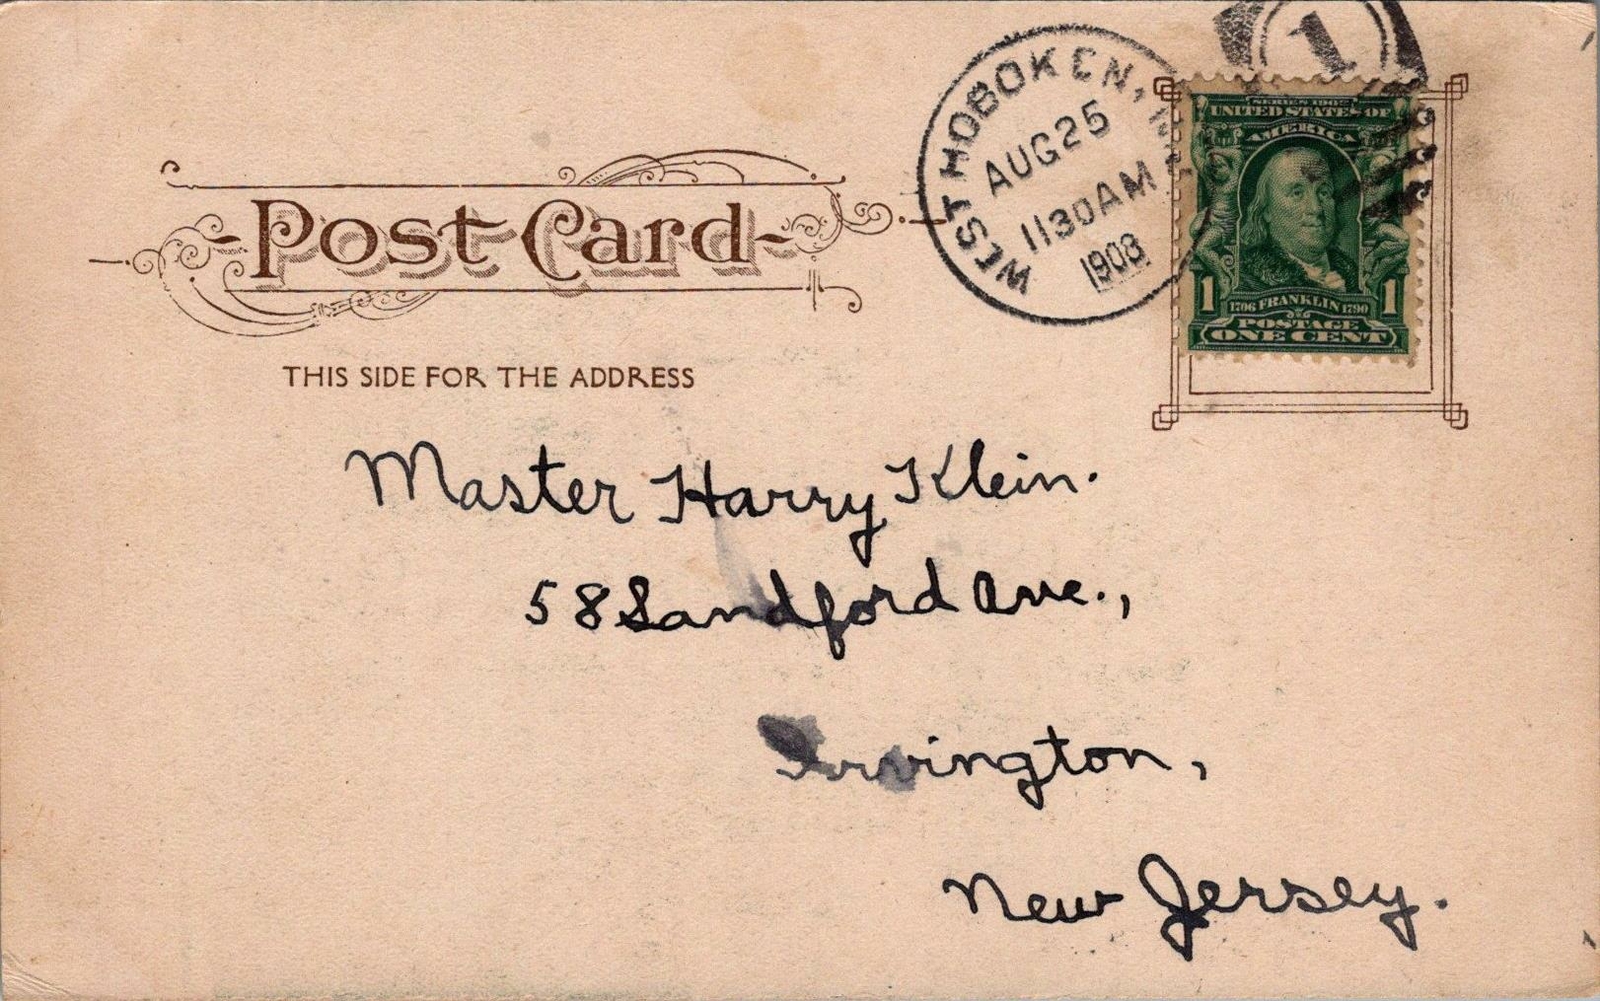 WEST HOBOKEN, N.J.
AUG 25
1130 AM
1908
1
SERIES 1902
UNITED STATES OF
AMERICA
1 1
1706 FRANKLIN 1790
POSTAGE
ONE CENT
Post Card
THIS SIDE FOR THE ADDRESS
Master Harry Klein.
58 Sandford Ave.,
Irvington,
New Jersey.